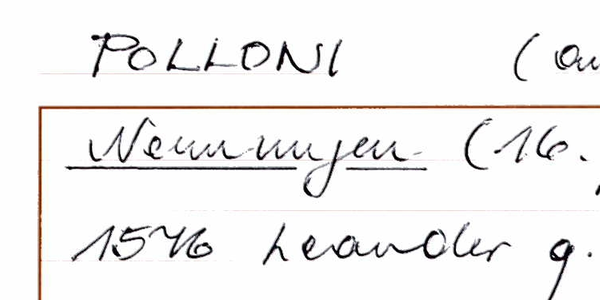 POLLONI (au
Nenningen (16.
1546 Leander g.